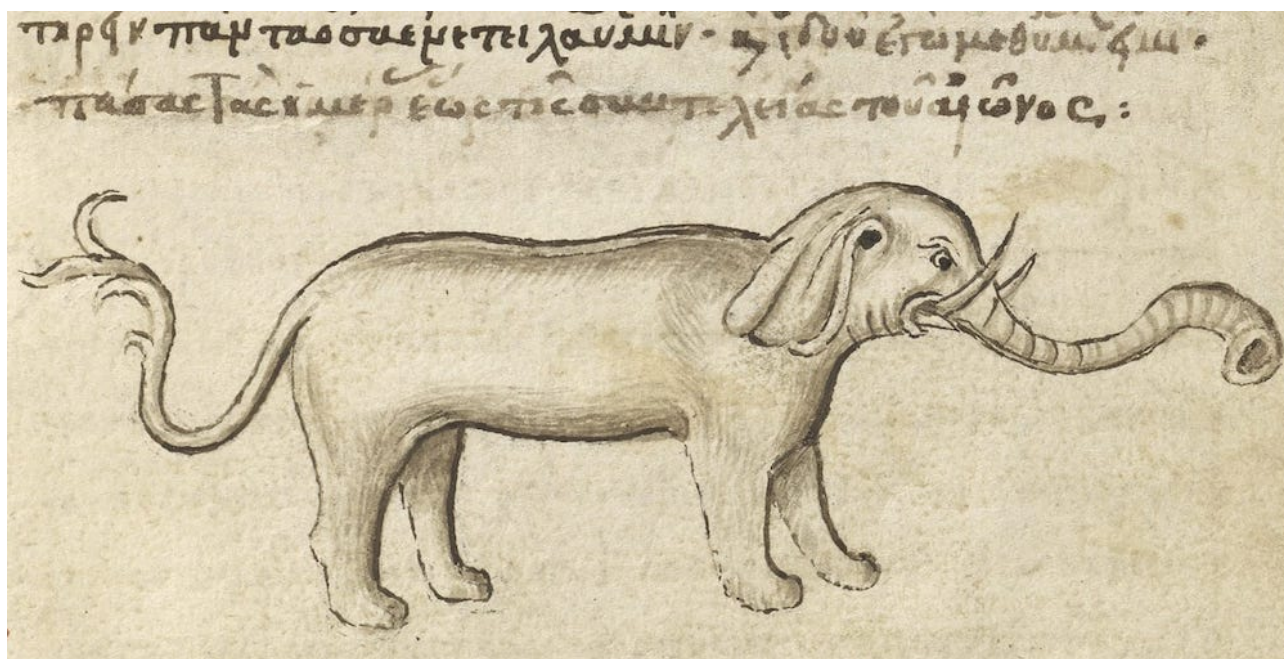 τηρεῖν πάντα ὅσα καὶ ἰδοὺ ἐγὼ μεθ ὑμῶν εἰμι·
πάσας τὰς ἡμέρ ἕως τῆς συντελείας τοῦ αἰῶνος: